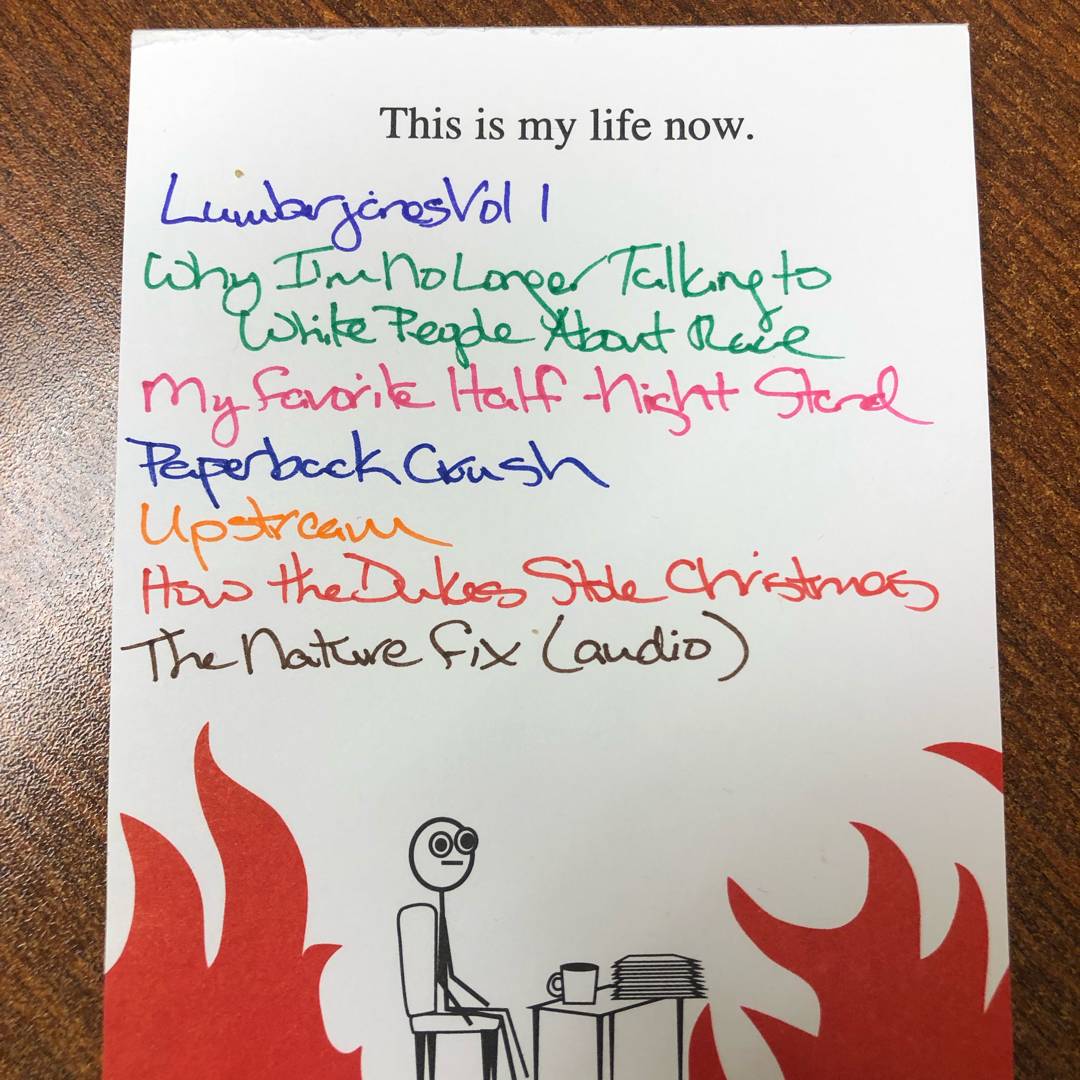 This is my life now.
Lumberjanes Vol 1
Why I'm No Longer Talking to
White People About Race
My Favorite Half-Night Stand
Paperback Crush
Upstream
How the Dukes Stole Christmas
The Nature Fix (audio)